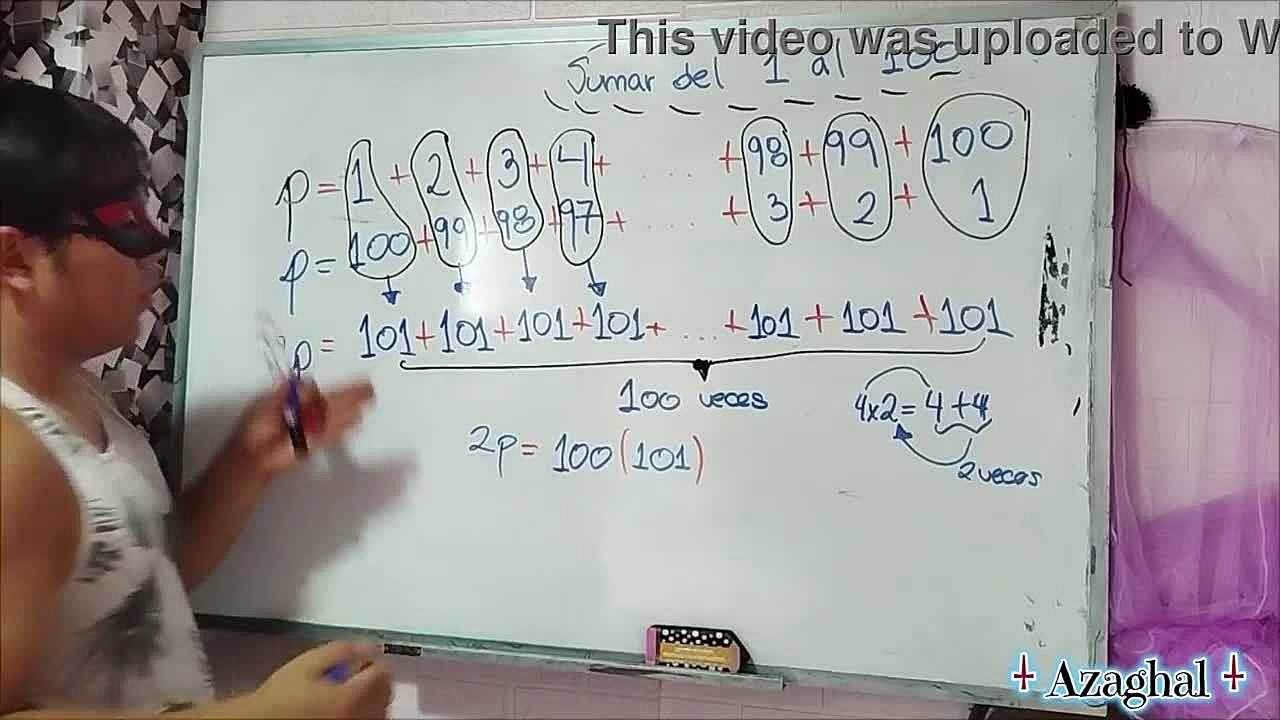 This video was uploaded to W
Sumar del 1 al 100
p = 1 + 2 + 3 + 4 + .... + 98 + 99 + 100
p = 100 + 99 + 98 + 97 + .... + 3 + 2 + 1
p = 101 + 101 + 101 + 101 + ... + 101 + 101 + 101
100 veces
4x2 = 4 + 4
2 veces
2p = 100 (101)
Azaghal